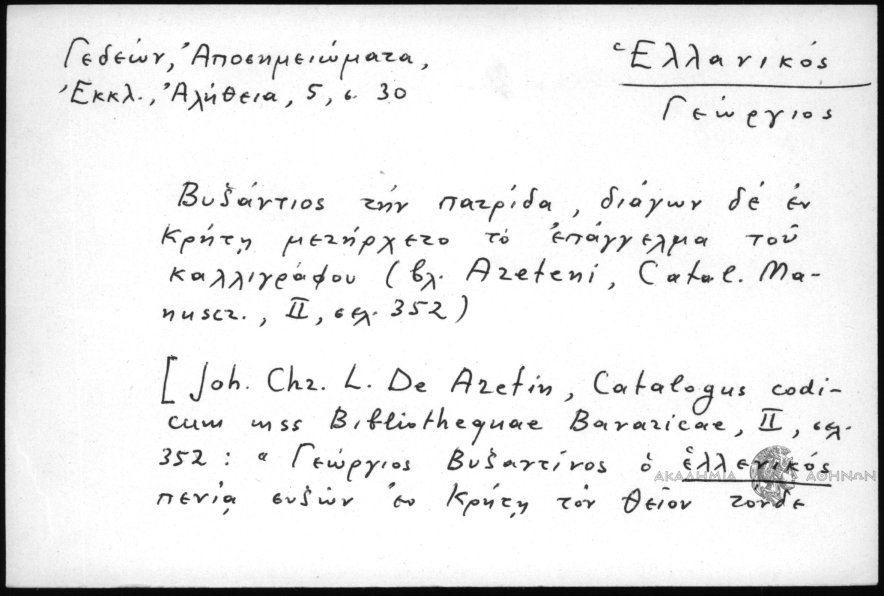 Γεδεών, Ἀποσημειώματα,
Ἐκκλ. Ἀλήθεια, 5, σ. 30
Ἑλλανικός
Γεώργιος
Βυζάντιος τήν πατρίδα, διάγων δέ ἐν
Κρήτῃ μετήρχετο τὸ ἐπάγγελμα τοῦ
καλλιγράφου (βλ. Areteni, Catal. Ma-
nuscr., II, σελ. 352)
[Joh. Chr. L. De Aretin, Catalogus codi-
cum mss Bibliothequae Bavaricae, II, σελ.
352: "Γεώργιος Βυζαντίνος ὁ ἑλλενικός
πενίᾳ συζῶν ἐν Κρήτῃ τόν θεῖον τόνδε
ΑΚΑΔΗΜΙΑ ΑΘΗΝΩΝ